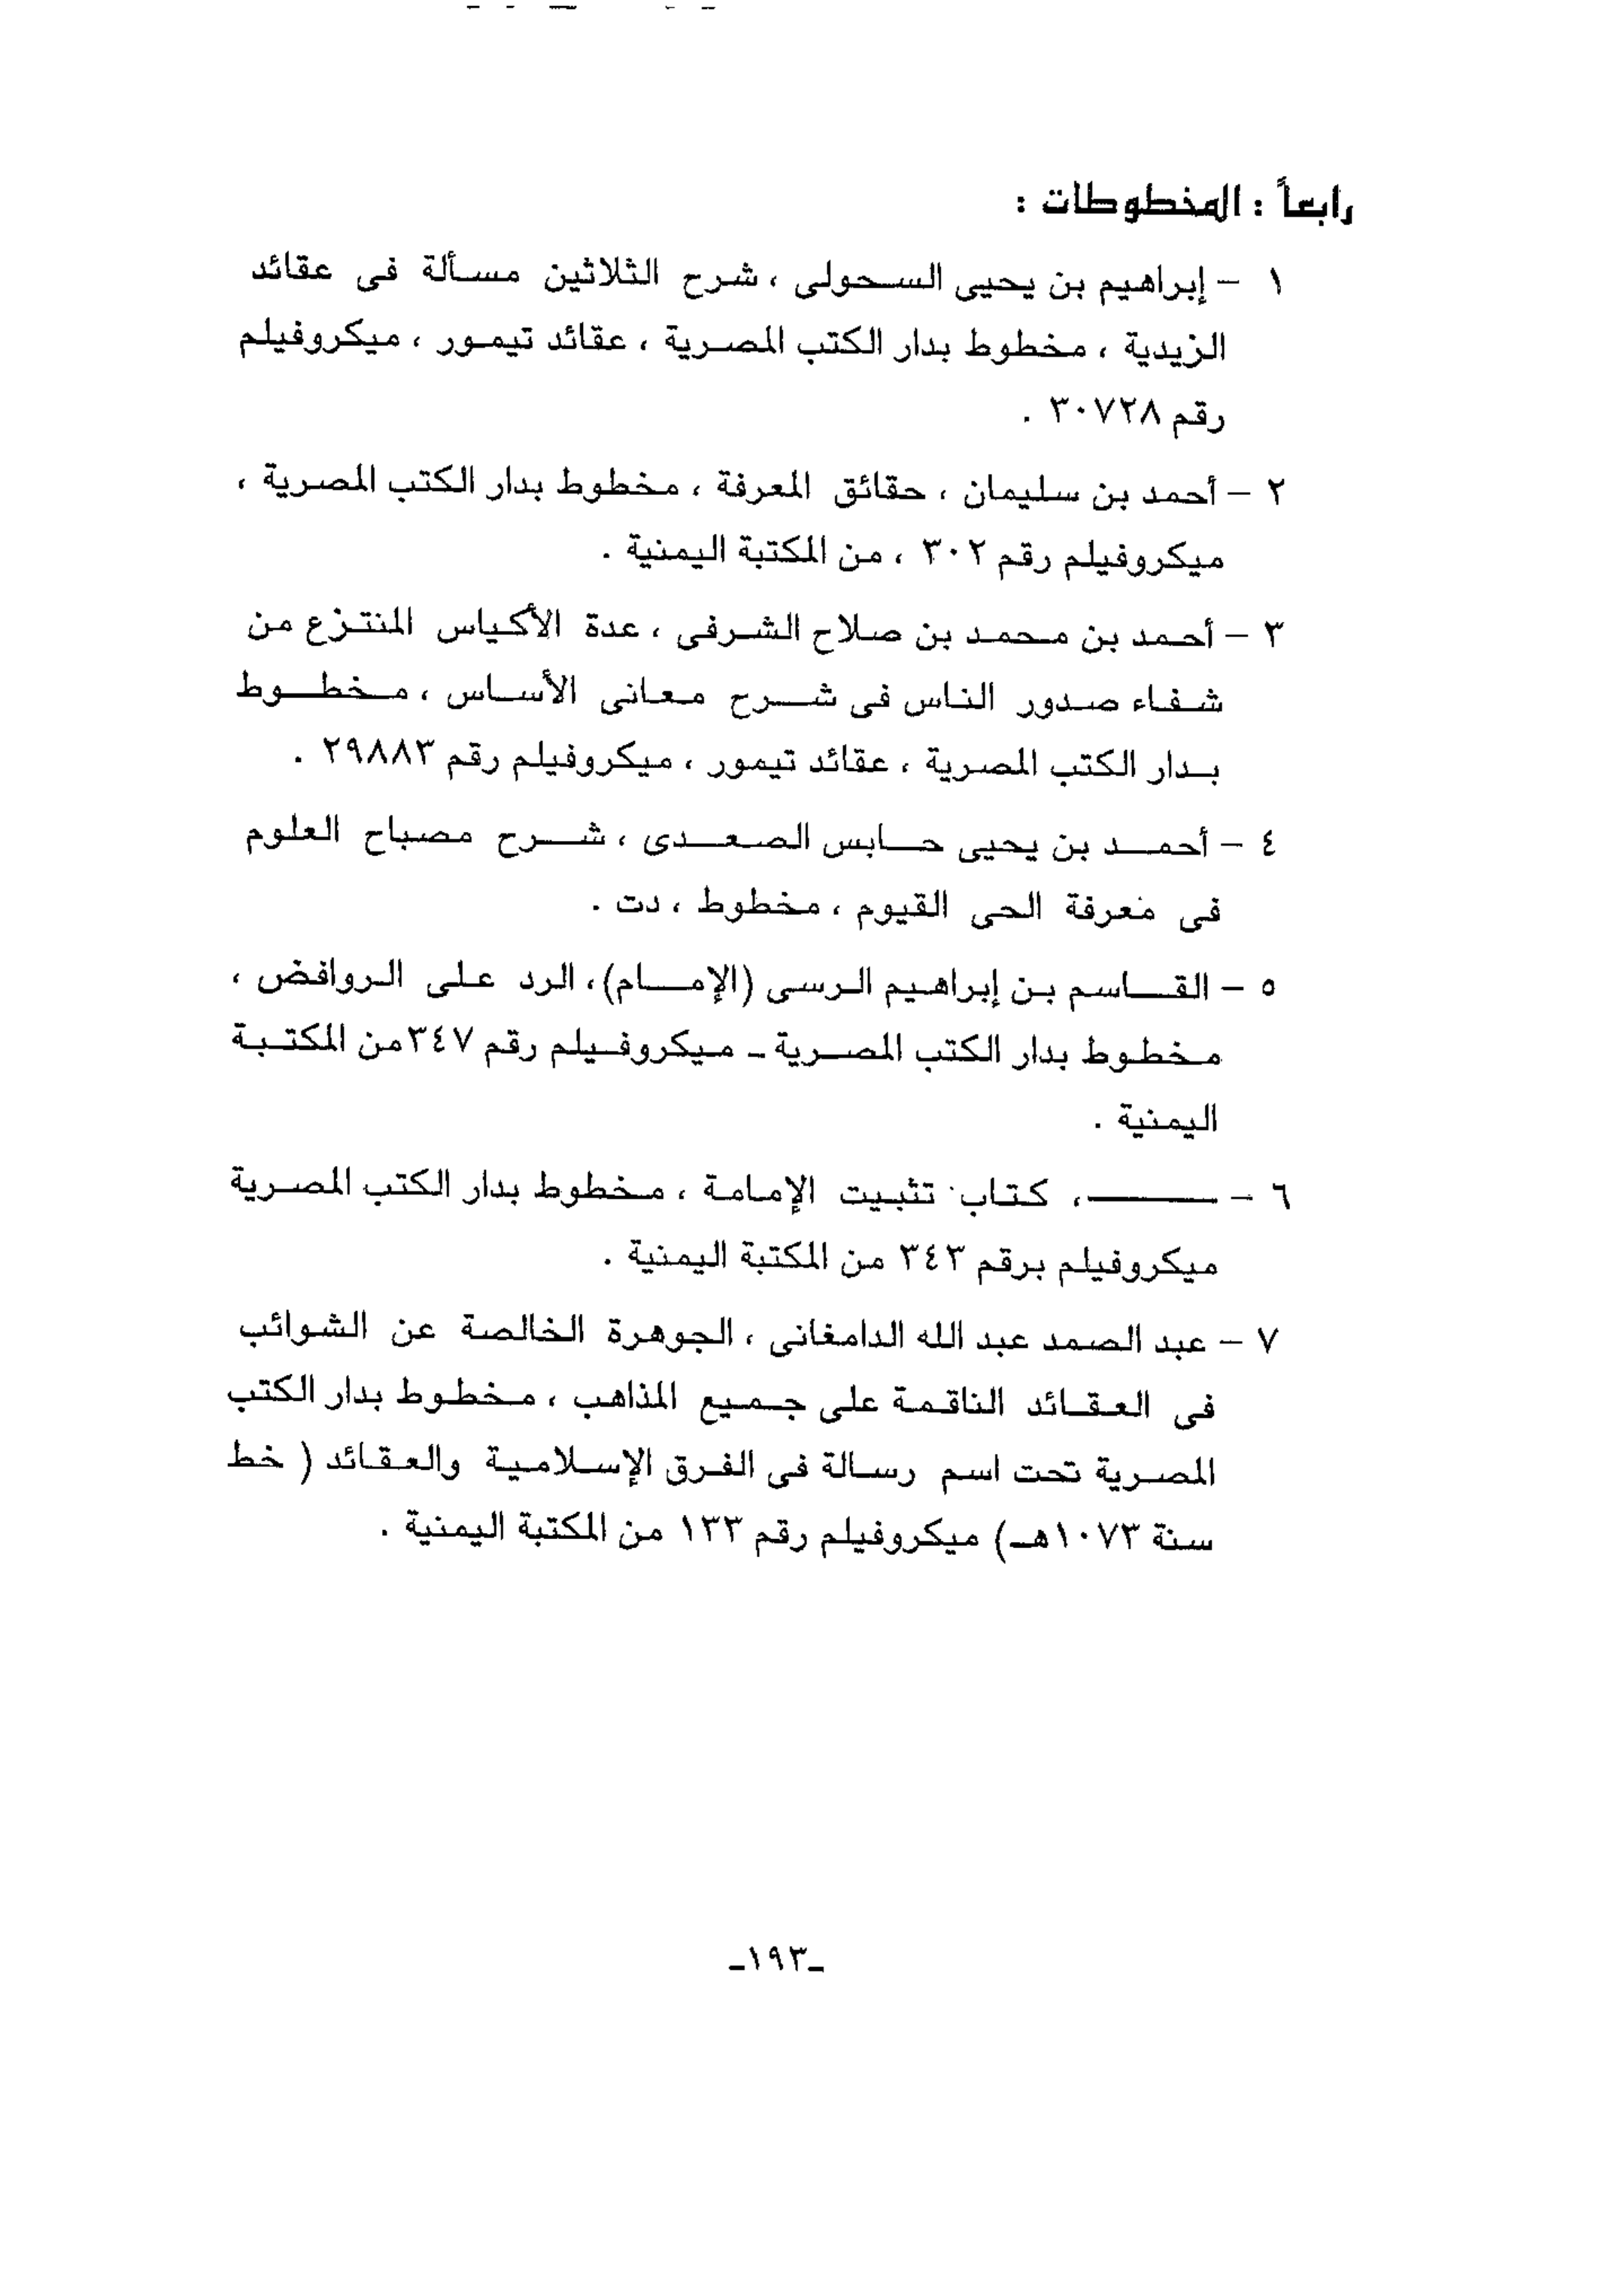 رابعاً : المخطوطات :
١ – إبراهيم بن يحيى السحولى ، شرح الثلاثين مسألة فى عقائد
الزيدية ، مخطوط بدار الكتب المصرية ، عقائد تيمور ، ميكروفيلم
رقم ٣٠٧٢٨ .
٢ – أحمد بن سليمان ، حقائق المعرفة ، مخطوط بدار الكتب المصرية ،
ميكروفيلم رقم ٣٠٢ ، من المكتبة اليمنية .
٣ – أحمد بن محمد بن صلاح الشرفى ، عدة الأكياس المنتزع من
شفاء صدور الناس فى شرح معانى الأساس ، مخطوط
بدار الكتب المصرية ، عقائد تيمور ، ميكروفيلم رقم ٢٩٨٨٣ .
٤ – أحمد بن يحيى حابس الصعدى ، شرح مصباح العلوم
فى معرفة الحى القيوم ، مخطوط ، دت .
٥ – القاسم بن إبراهيم الرسى (الإمام)، الرد على الروافض ،
مخطوط بدار الكتب المصرية ـ ميكروفيلم رقم ٣٤٧من المكتبة
اليمنية .
٦ – ـــــــــ، كتاب تثبيت الإمامة ، مخطوط بدار الكتب المصرية
ميكروفيلم برقم ٣٤٣ من المكتبة اليمنية .
٧ – عبد الصمد عبد الله الدامغانى ، الجوهرة الخالصة عن الشوائب
فى العقائد الناقمة على جميع المذاهب ، مخطوط بدار الكتب
المصرية تحت اسم رسالة فى الفرق الإسلامية والعقائد ( خط
سنة ١٠٧٣هـ) ميكروفيلم رقم ١٣٣ من المكتبة اليمنية .
ـ١٩٣ـ